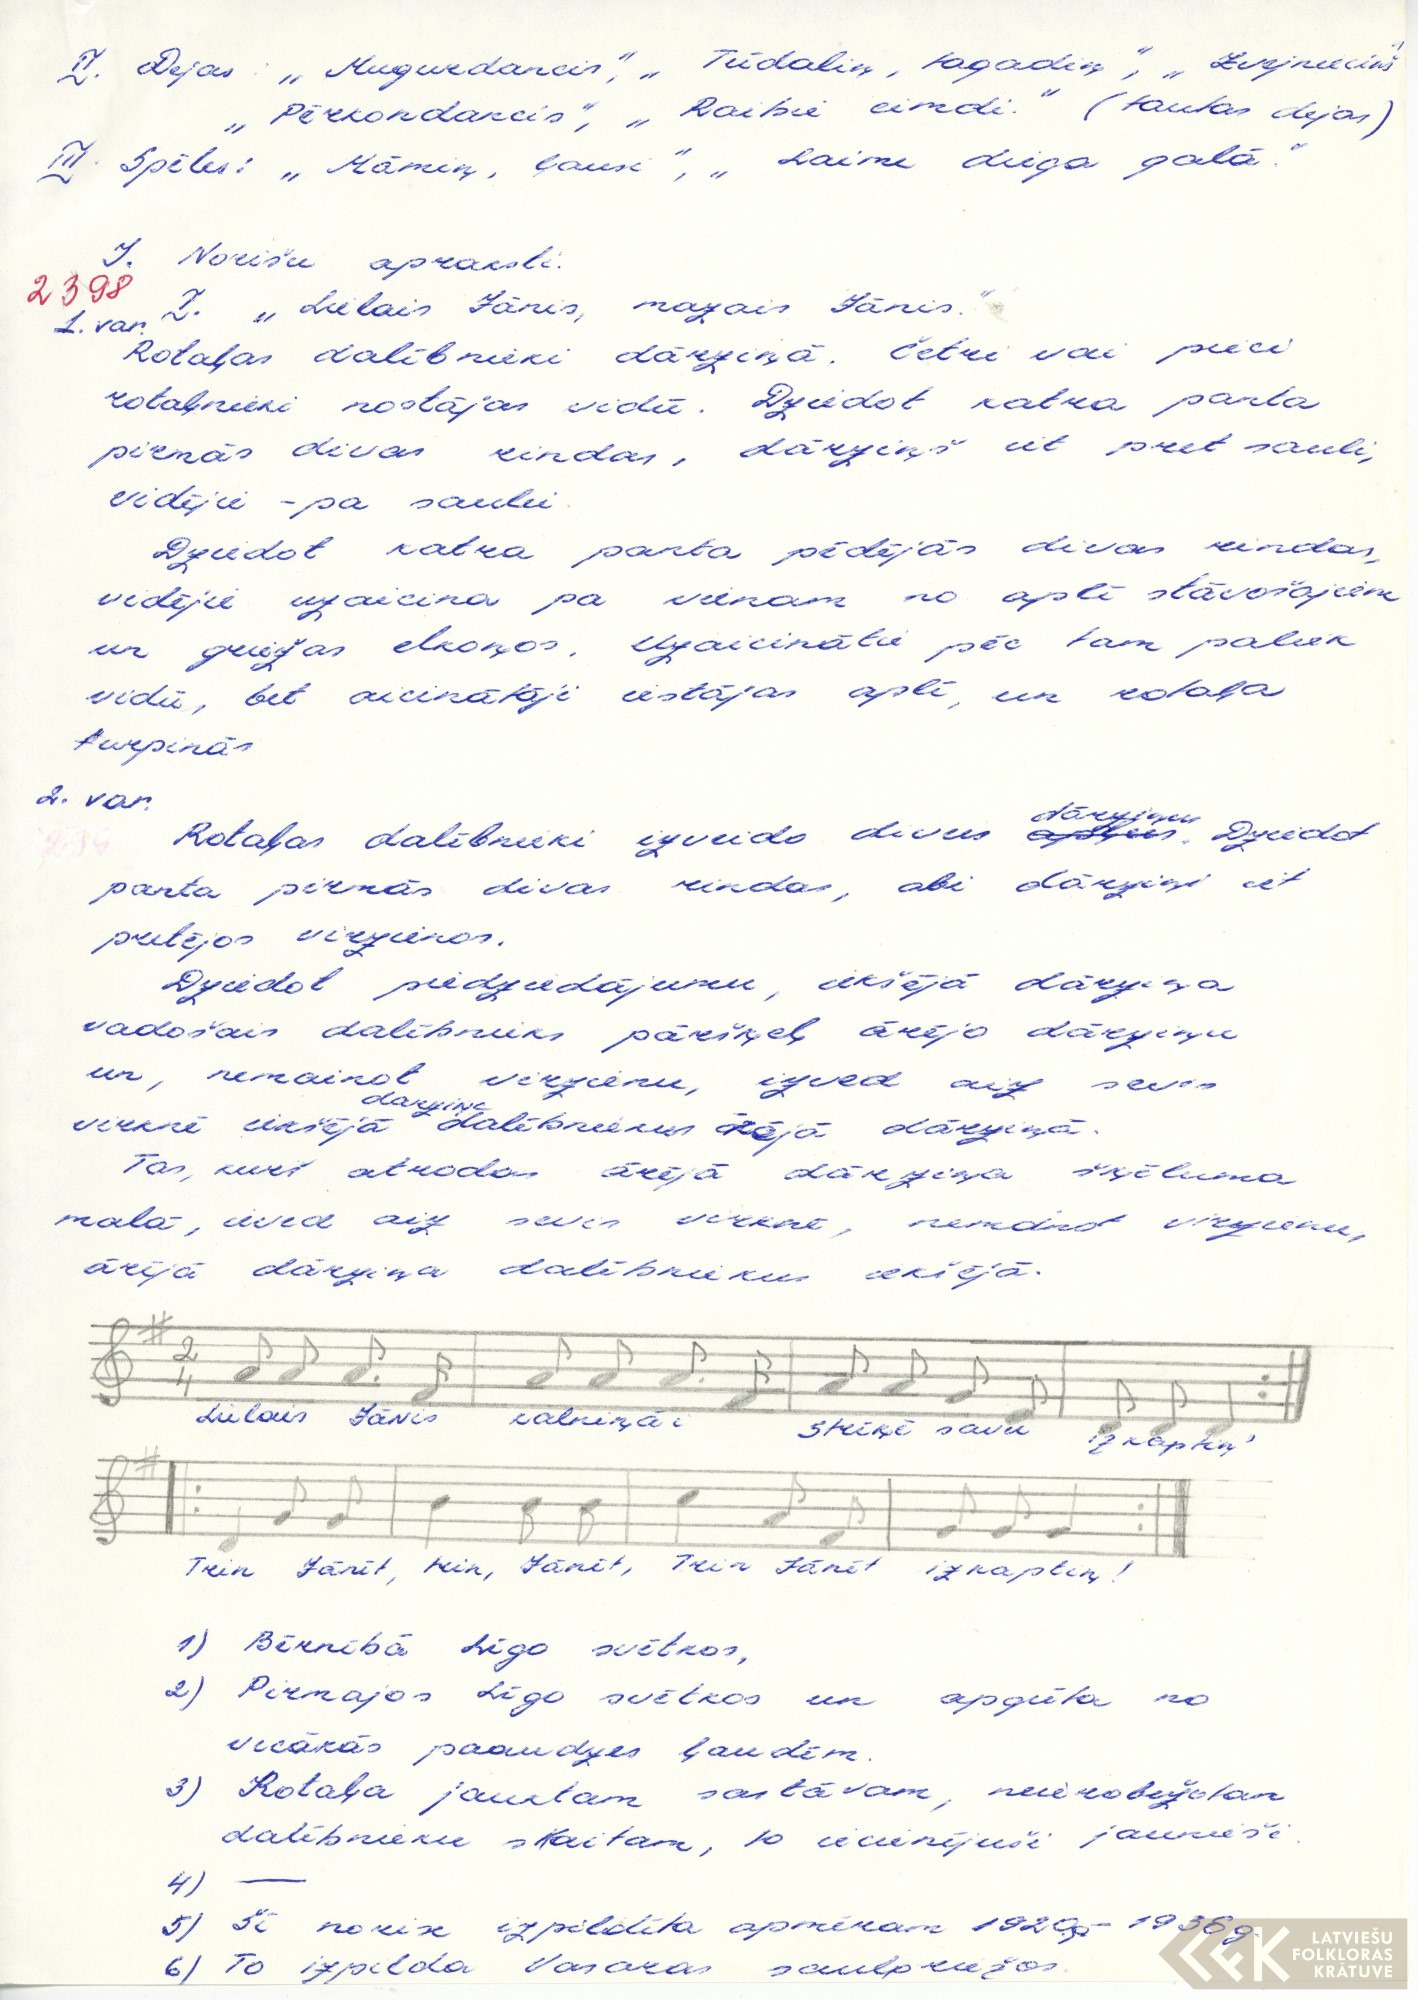 II. Dejas: „Mugurdancis”, „Tūdaliņ, tagadiņ”, „Zvejnieciņš”
„Pērkondancis”, „Raibie cimdi.” (tautas dejas)
III. Spēles: „Māmiņ, ļausi”, „Laime diega galā.”
I. Norišu apraksti.
2398
I. „Lielais Jānis, mazais Jānis.”
1. var.
Rotaļas dalībnieki dārziņā. Četri vai pieci
rotaļnieki nostājas vidū. Dziedot katra panta
pirmās divas rindas, dārziņš iet pret sauli,
vidējie - pa saulei.
Dziedot katra panta pēdējās divas rindas,
vidējie uzaicina pa vienam no aplī stāvošajiem
un griežas elkoņos. Uzaicinātie pēc tam paliek
vidū, bet aicinātāji iestājas aplī, un rotaļa
turpinās
2. var.
Rotaļas dalībnieki izveido divus dārziņus. Dziedot
panta pirmās divas rindas, abi dārziņi iet
pretējos virzienos.
Dziedot piedziedājumu, iekšējā dārziņa
vadošais dalībnieks pāršķeļ ārējo dārziņu
un, nemainot virzienu, izved aiz sevis
virknē iekšējā dārziņa dalībniekus ārējā dārziņā.
Tas, kurš atrodas ārējā dārziņa šķēluma
malā, ieved aiz sevis virknē, nemainot virzienu,
ārējā dārziņa dalībniekus iekšējā.
2/4
Lielais Jānis kalniņāi strīķē savu izkaptiņ'
Trin Jānīt, trin, Jānīt, Trin Jānīt izkaptiņ!
1) Bērnībā Līgo svētkos,
2) Pirmajos Līgo svētkos un apgūta no
vecākās paaudzes ļaudīm.
3) Rotaļa jauktam sastāvam, neierobežotam
dalībnieku skaitam, to iecienījuši jaunieši.
4) —
5) Šī norise izpildīta apmēram 1920.g. - 1936g.
6) To izpilda Vasaras saulgriežos.
LATVIEŠU
FOLKLORAS
KRĀTUVE